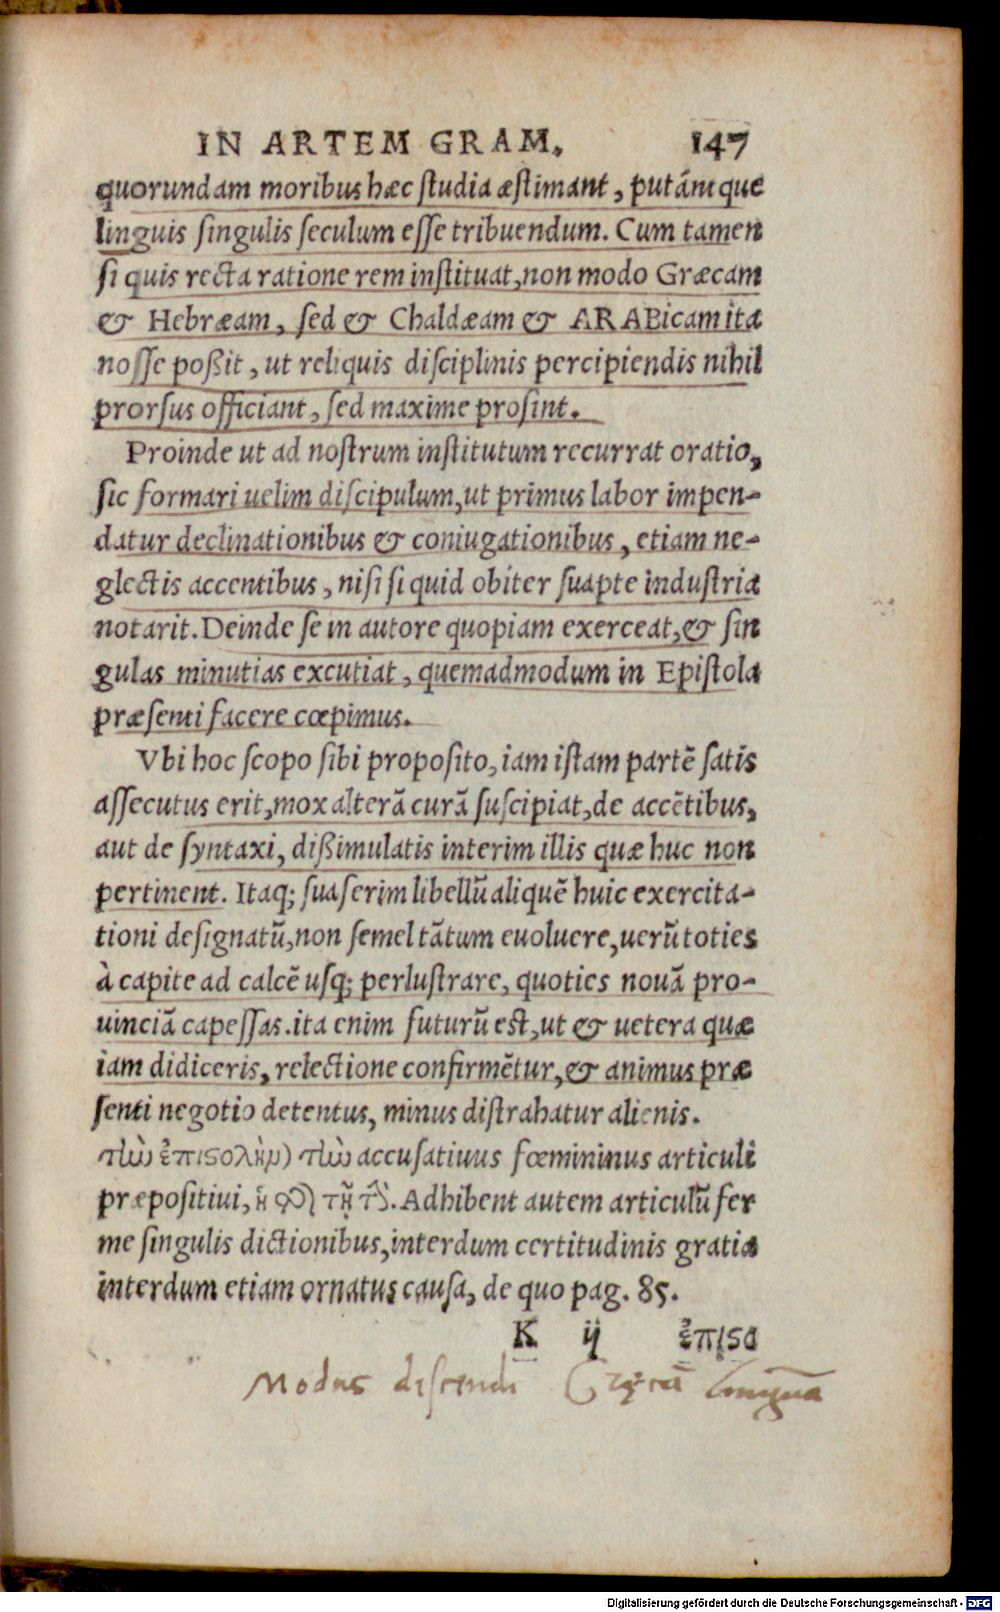 IN ARTEM GRAM. 147
quorundam moribus hæc studia æstimant, putántque
linguis singulis seculum esse tribuendum. Cum tamen
si quis recta ratione rem instituat, non modo Græcam
& Hebræam, sed & Chaldæam & ARABicam ita
nosse poßit, ut reliquis disciplinis percipiendis nihil
prorsus officiant, sed maxime prosint.
Proinde ut ad nostrum institutum recurrat oratio,
sic formari uelim discipulum, ut primus labor impen-
datur declinationibus & coniugationibus, etiam ne-
glectis accentibus, nisi si quid obiter suapte industria
notarit. Deinde se in autore quopiam exerceat, & sin
gulas minutias excutiat, quemadmodum in Epistola
præsenti facere cœpimus.
Vbi hoc scopo sibi proposito, iam istam partē satis
assecutus erit, mox alterā curā suscipiat, de accētibus,
aut de syntaxi, dißimulatis interim illis quæ huc non
pertinent. Itaq; suaserim libellū aliquē huic exercita-
tioni designatū, non semel tātum euoluere, uerū toties
à capite ad calcē usq; perlustrare, quoties nouā pro-
uinciā capessas. ita enim futurū est, ut & uetera quæ
iam didiceris, relectione confirmētur, & animus præ
senti negotio detentus, minus distrahatur alienis.
τὼ ἐπιϛολὴμ) τὼ accusatiuus fœmininus articuli
præpositiui, ἡ τῆ. Adhibent autem articulū fer
me singulis dictionibus, interdum certitudinis gratia
interdum etiam ornatus causa, de quo pag. 85.
K ij ἐπιϛο
Modus discendi Gręcā linguā